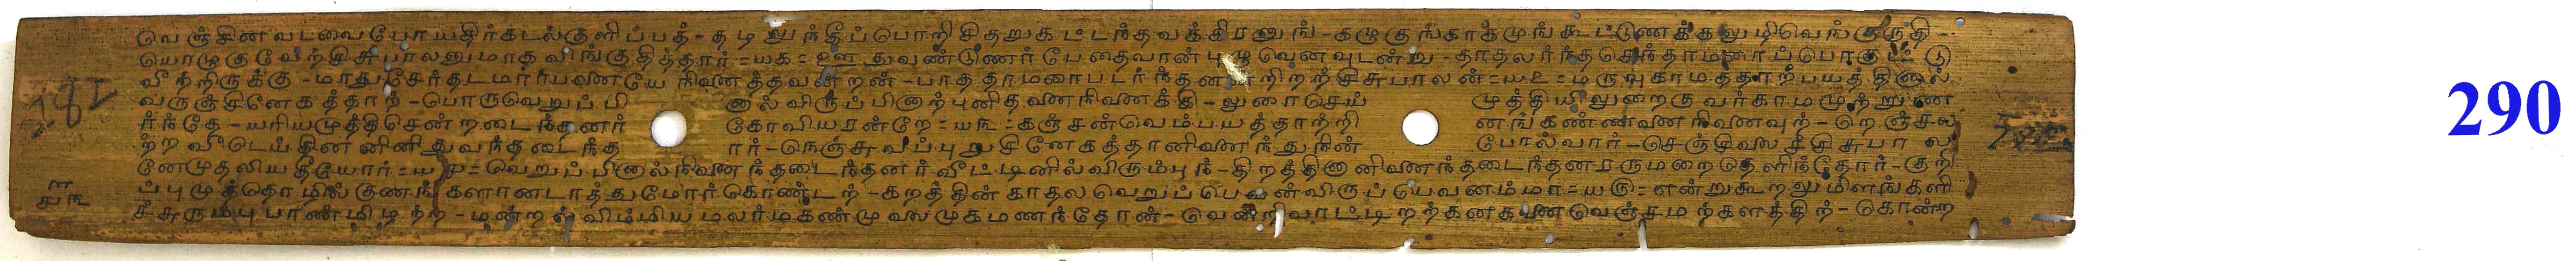 வெஞ்சினவடவைபோயதிர்கடல்குளிப்பத்-தழலுந்தீப்பொறிசிதறுகட்டந்தவக்கிரனுங்-கழுகுங்காகமுங்கூட்டுணக்கலுழிவெங்குருதி-
யொழுகுவேற்சிசுபாலனுமாதலிங்குதித்தார்=யக=ஊதுவண்டுணர்பேதைவான் புழுவெனவுடன்று-தாதலர்ந்தசெந்தாமரைப்பொகுட்டு
வீற்றிருக்கு-மாதுசேர்தடமார்பவனையே நினைத்தவனறன்-பாததாமரைபடர்ந்தனனிறற்சிசுபாலன்=ய௨=மருவுகாமத்தாற்பயத்தினால்
வருஞ்சினேகத்தாற்-பொருவெறுப்பி னால்விருப்பினாற்புனிதனைநினைக்கி-லுரைசெய் முத்தியிலுறைகுவர்காமமுற்றுண
ர்ந்தே-யரியமுத்திசென்றடைந்தனர் கோவியரன்றே=ய௩=கஞ்சன்வெம்பயத்தாற்றி னங்கண்ணனைநினைவுற்-றெஞ்சல
ற்றவீடெய்தினனினிதுவந்தடைந்த ார்-நெஞ்சுவீப்புறுசினேகத்தானினைந்துநின் போல்வார்-செஞ்சிலைச்சிசுபால
னேமுதலியதீயோர்=ய௪=வெறுப்பினால்நினைந்தடைந்தனர்வீட்டினில்விரும்புந்-திறத்தினானினைந்தடைந்தனரருமறைதெளிந்தோர்-குறி
ப்புமுத்தொழில்குணங்களானடாத்துமோர்கொண்டற்-கறத்தின்காதலவெறுப்பெவன்விருப்பெவனம்மா=ய௫=என்றுகூறலுமிளங்களி
ச்சுரும்புபாண்மிழற்ற-மன்றல்விம்மியமலர்மகண்முலைமுகமணந்தோன்-வென்றிவாட்டிறற்கனகனைவெஞ்சமற்களத்திற்-கொன்ற
290